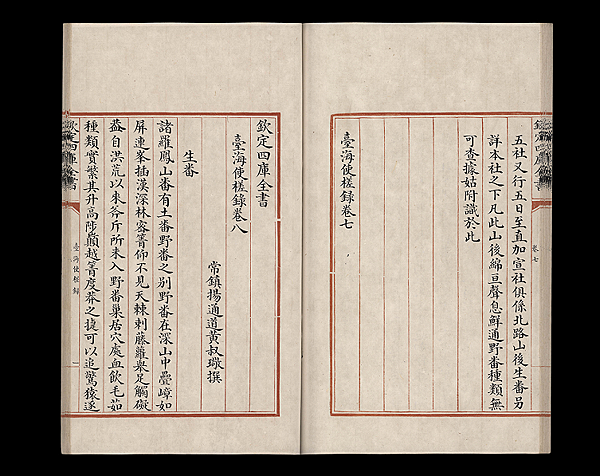 五社又行五日至直加宣社俱係北路山後生番另
詳本社之下凡此山後綿亘聲息鮮通野番種類無
可查據姑附識於此
臺海使槎錄卷七
卷七
欽定四庫全書
臺海使槎錄卷八
常鎮揚通道黃叔璥撰
生番
諸羅鳳山番有土番野番之別野番在深山中疊嶂如
屏連峯插漢深林密箐仰不見天棘刺藤蘿舉足觸礙
蓋自洪荒以來斧斤所未入野番巢居穴處血飲毛茹
種類實繁其升高陟巔越箐度莽之捷可以追驚猿逐
欽定四庫全書
臺海使槎錄
一